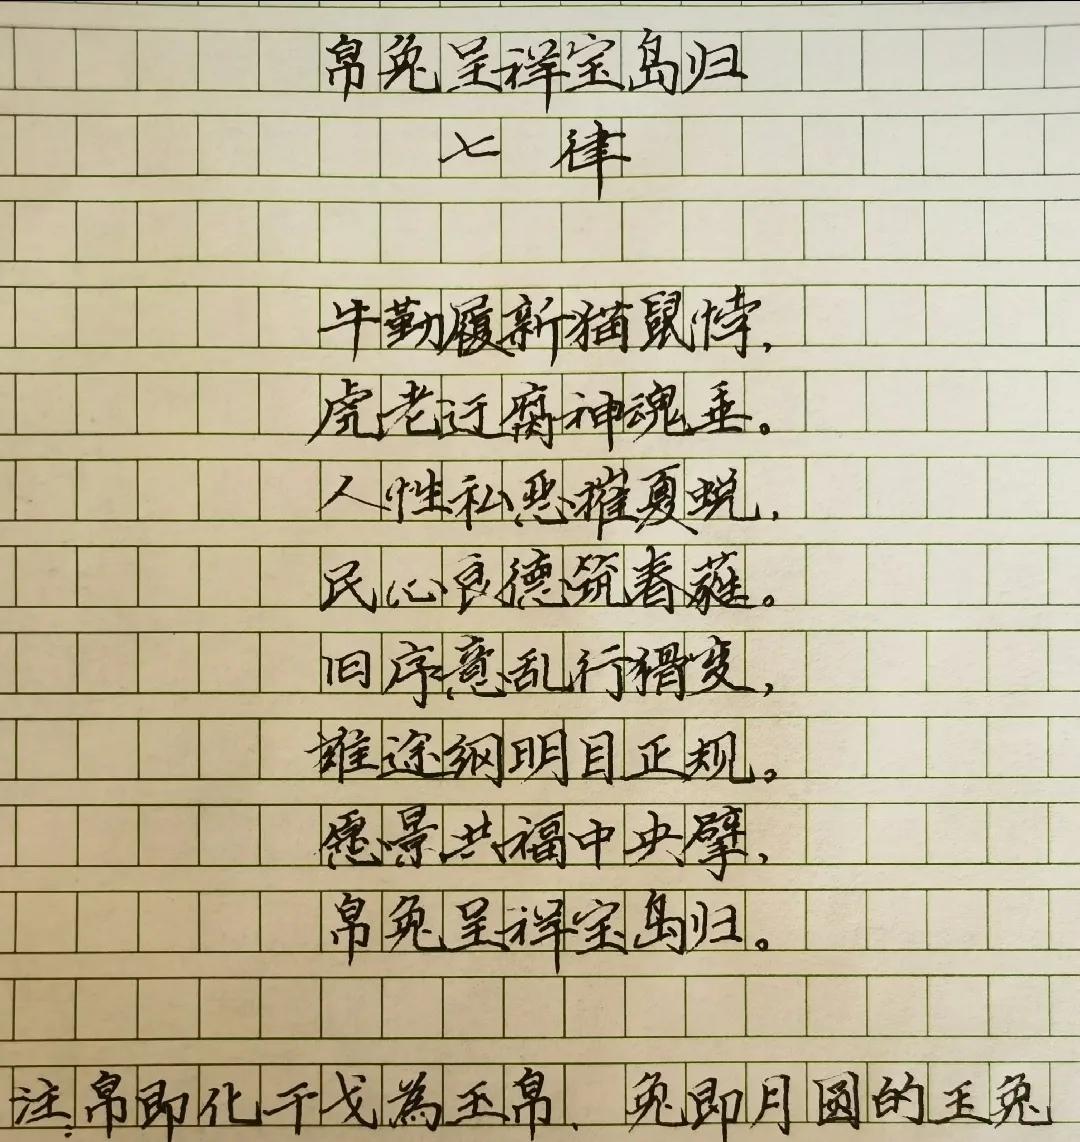 帛兔呈祥宝岛归
七律
牛勤履新猫鼠悖，
虎老迂腐神魂垂。
人性私恶摧夏蜕，
民心良德筑春蕤。
旧序意乱行猾变，
雄途纲明目正规。
愿景共福中央擘，
帛兔呈祥宝岛归。
注：帛即化干戈為玉帛、兔即月圆的玉兔